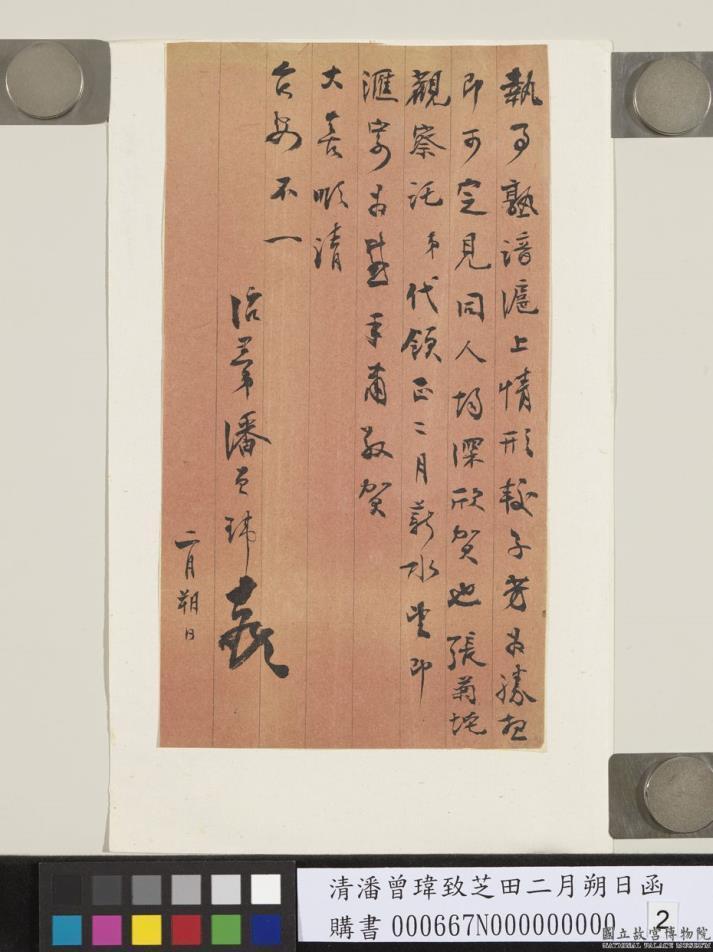 執事熟諳滬上情形較子芳為勝想
即可定見同人均深欣賀也張菊垞
觀察託弟代領正二月薪水望即
滙寄為盛專肅敬賀
大喜順請
台安不一
治葦潘曾瑋頓
二月朔日
清潘曾瑋致芝田二月朔日函
購書000667N000000000 2
國立故宮博物院
NATIONAL PALACE MUSEUM